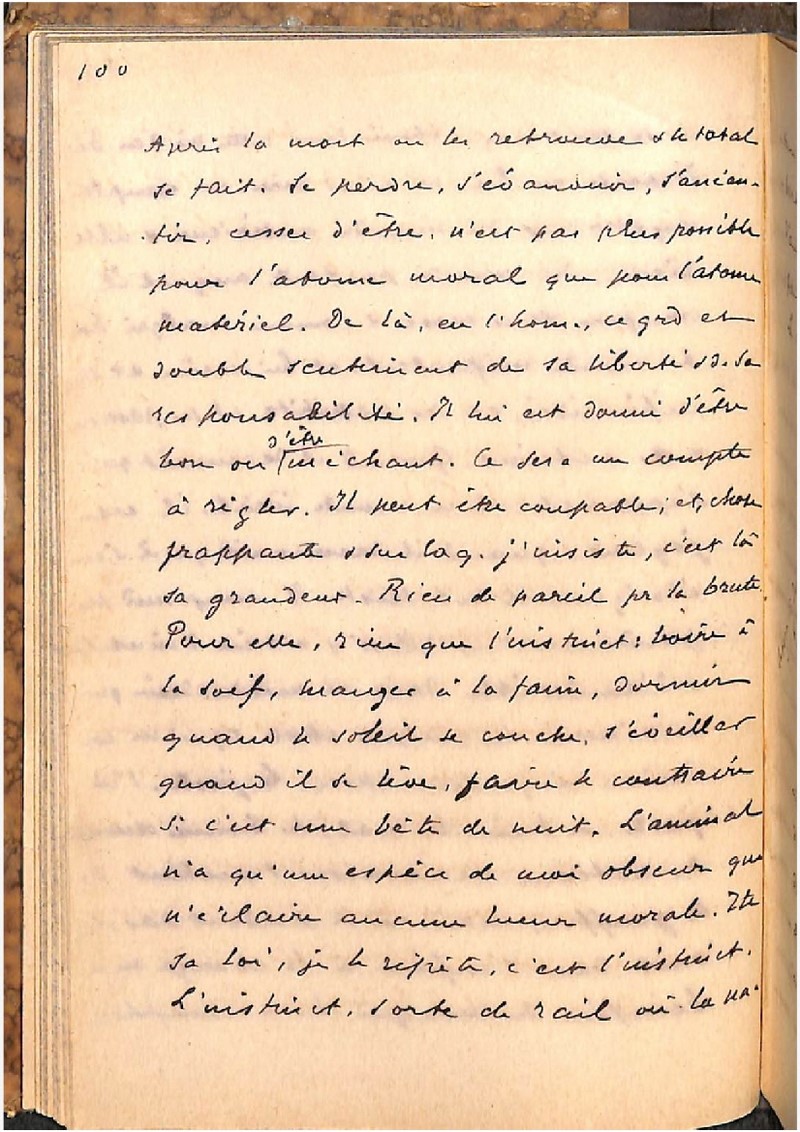 100
Après la mort on les retrouve & le total
se fait. Se perdre, s'évanouir, s'anéan-
tir, cesser d'être, n'est pas plus possible
pour l'atome moral que pour l'atome
matériel. De là, en l'hom., ce grd et
double sentiment de sa liberté & de sa
responsabilité. Il lui est donné d'être
bon ou d'être méchant. Ce sera un compte
à régler. Il peut être coupable; et, chose
frappante & sur laq. j'insiste, c'est là
sa grandeur. Rien de pareil pr la brute.
Pour elle, rien que l'instinct: boire à
la soif, manger à la faim, dormir
quand le soleil se couche, s'éveiller
quand il se lève, faire le contraire
si c'est une bête de nuit. L'animal
n'a qu'une espèce de moi obscur que
n'éclaire aucune lueur morale. Tte
sa loi, je le répète, c'est l'instinct.
L'instinct, sorte de rail où la na-